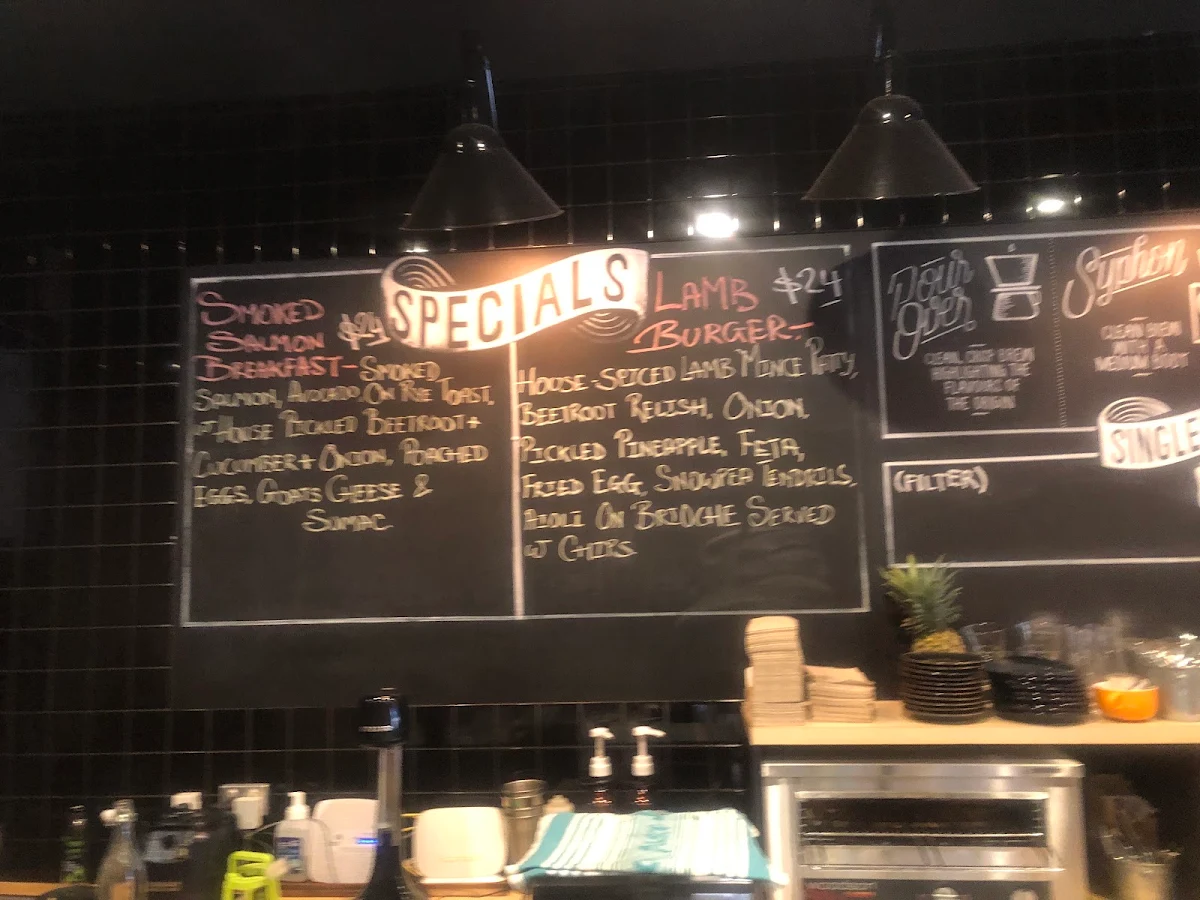 SPECIALS
SMOKED
SALMON $24
BREAKFAST - SMOKED
SALMON, AVOCADO ON RYE TOAST,
W HOUSE PICKLED BEETROOT +
CUCUMBER + ONION, POACHED
EGGS, GOATS CHEESE &
SUMAC.
LAMB $24
BURGER -
HOUSE-SPICED LAMB MINCE PATTY,
BEETROOT RELISH, ONION,
PICKLED PINEAPPLE, FETA,
FRIED EGG, SNOWPEA TENDRILS,
AIOLI ON BRIOCHE SERVED
W CHIPS.
Pour
Over
CLEAN, CRISP BREW
HIGHLIGHTING THE
FLAVOURS OF
THE ORIGIN
Syphon
CLEAN BREW
WITH A
MEDIUM BODY
SINGLE
(FILTER)